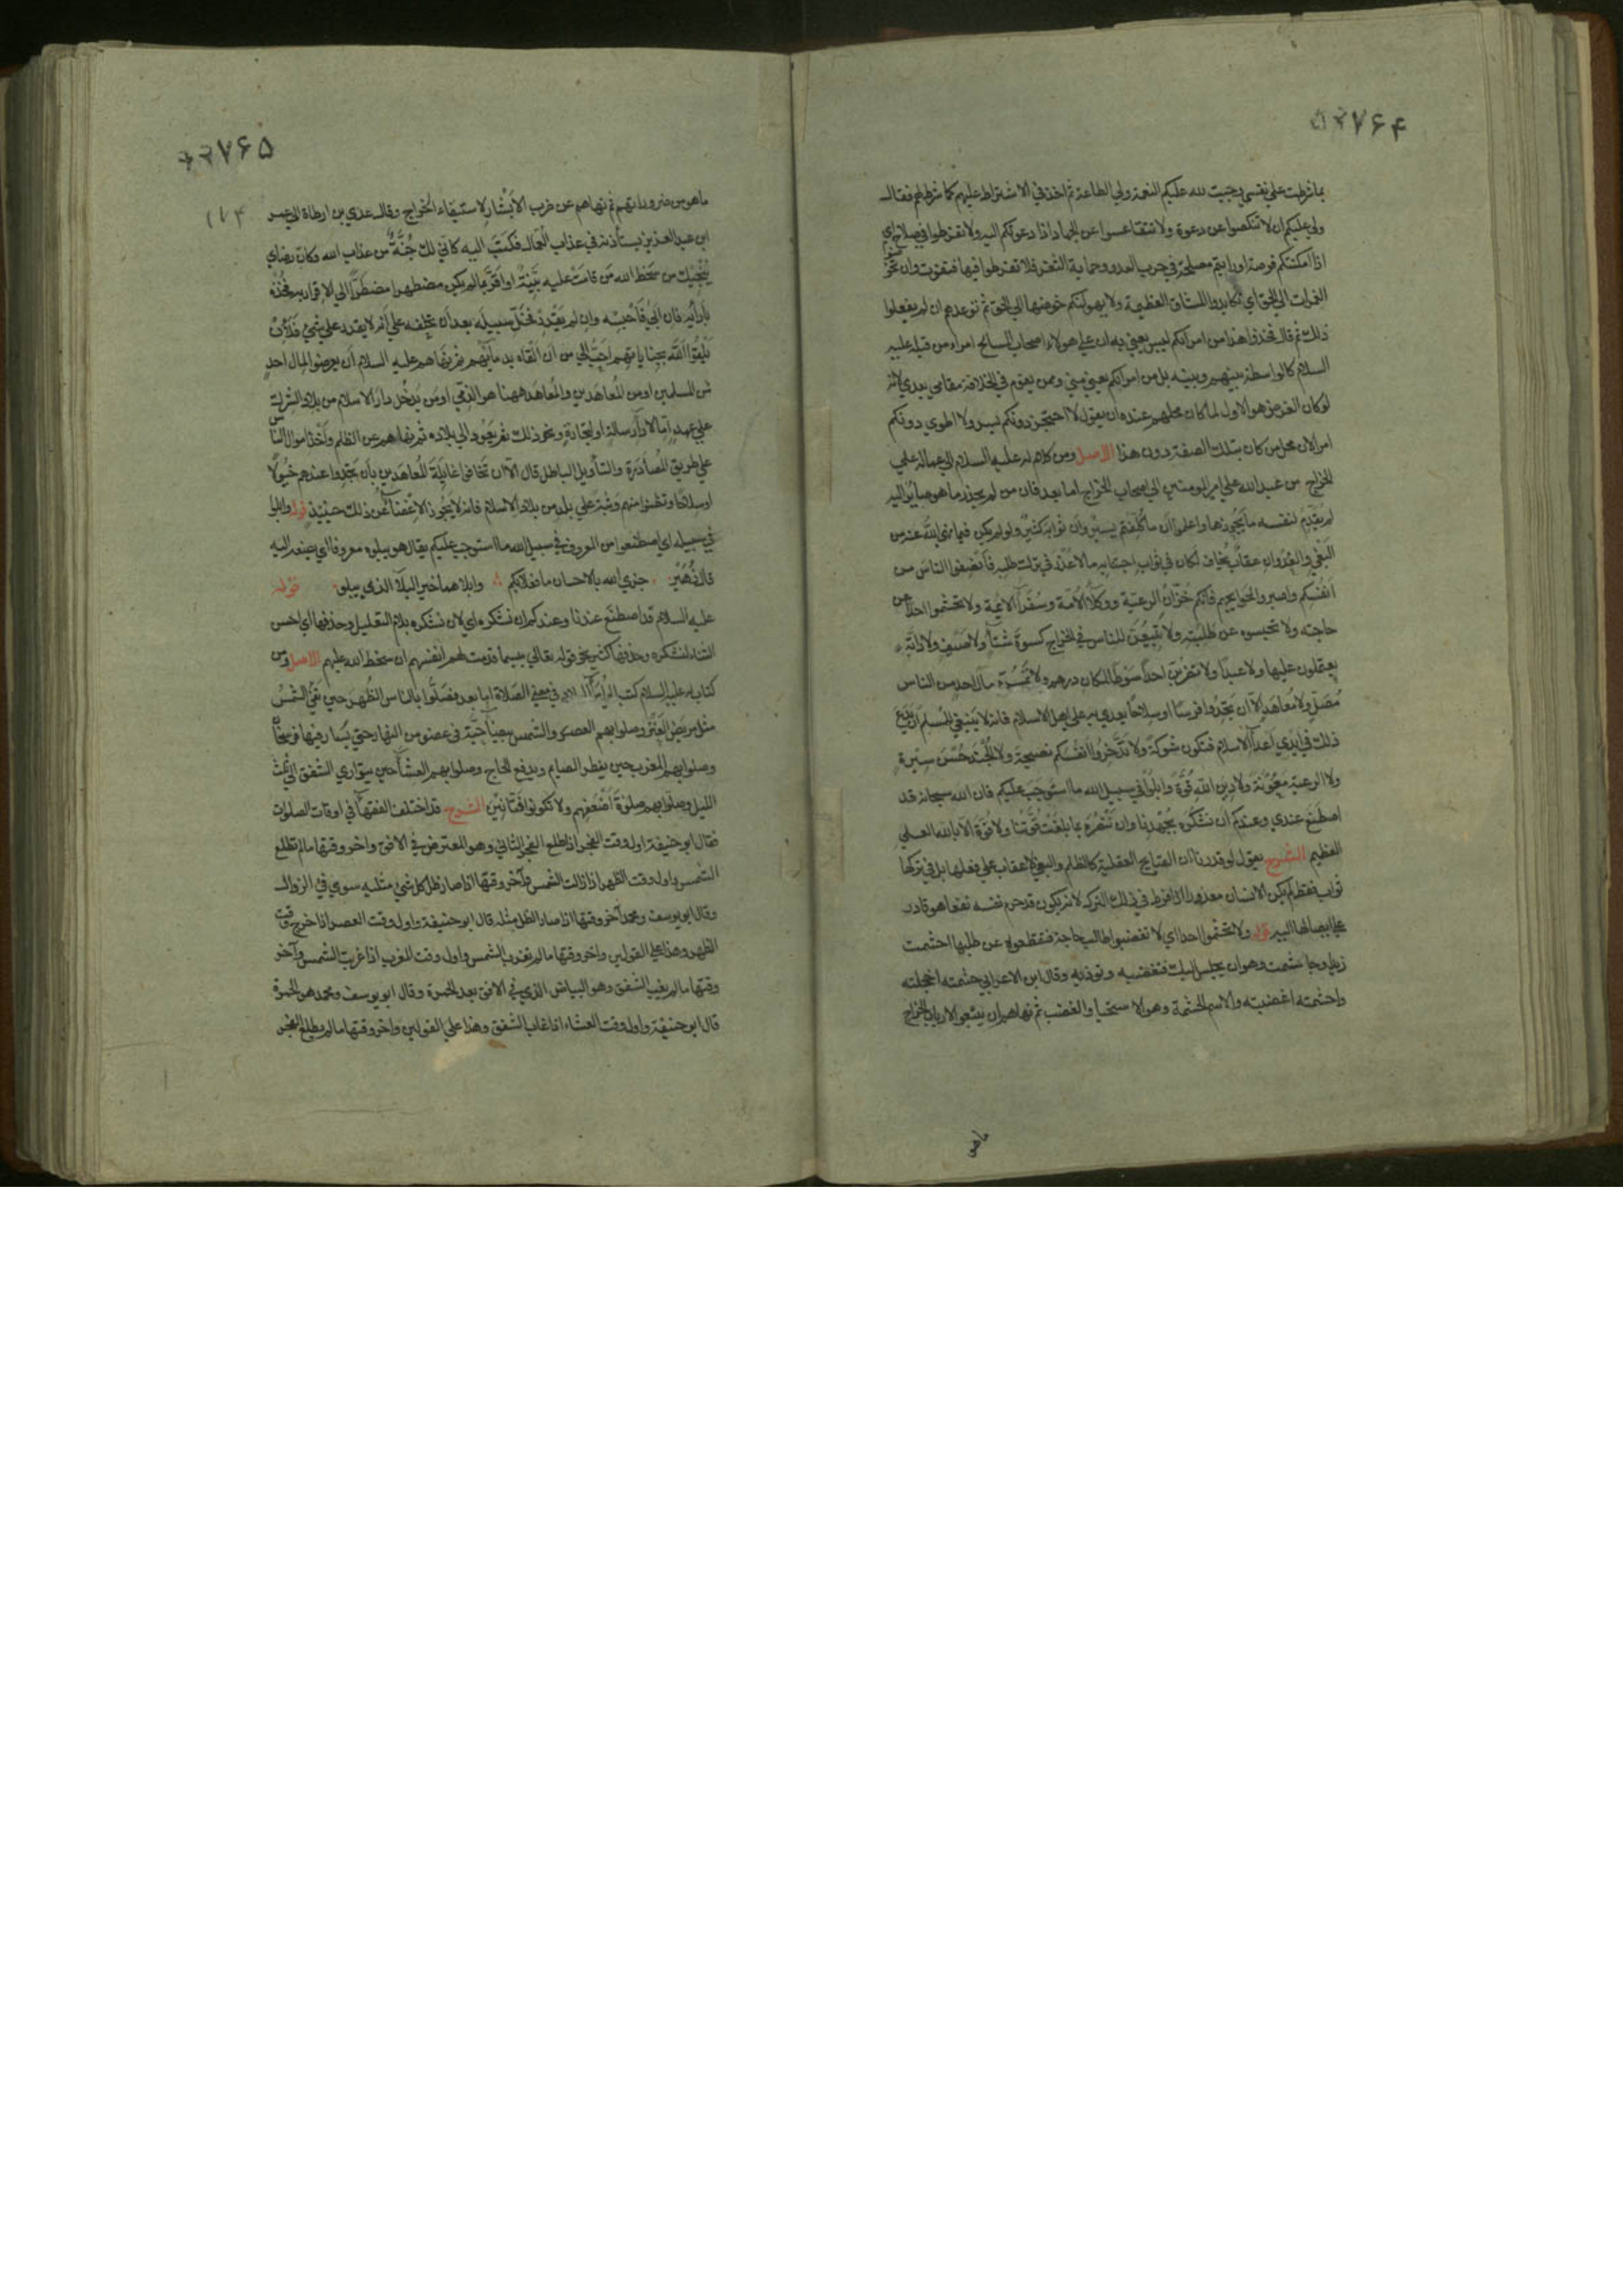 ۵۲۷۶۴
بما شرطت على نفسي وجبت لله عليكم النعمة ولي الطاعة ثم اخذ في الاشتراط عليهم كما شرط لهم فقال
ولي عليكم ان لا تنكصوا عن دعوة ولا تتقاعسوا عن الجهاد اذا دعوتكم اليه ولا تفرطوا في صلاح اي
اذا امكنتكم فرصة او رايتم مصلحة في حرب العدو وحماية الثغر فلا تفرطوا فيها فتفوت وان تخوضوا
الغمرات الى الحق اي تكابدوا المشاق العظيمة ولا يهولنكم خوضها الى الحق ثم توعدهم ان لم يفعلوا
ذلك ثم قال فخذوا هذا من امرائكم ليس يعني به ان على هولاء اصحاب المسالح امراء من قبله عليه
السلام كالواسطة بينهم وبينه بل من امرائكم يعني مني وممن يقوم في الخلافة مقامي بعدي لانه
لو كان الغرض هو الاول لما كان محلهم عنده ان يقول لا احتجز دونكم بسر ولا اطوي دونكم
امرا لان محل من كان بتلك الصفة دون هذا الاصل ومن كلام له عليه السلام الى عماله على
الخراج من عبد الله علي امير المومنين الى اصحاب الخراج اما بعد فان من لم يحذر ما هو صائر اليه
لم يقدم لنفسه ما يحرزها واعلموا ان ما كلفتم يسير وان ثوابه كثير ولو لم يكن فيما نهى الله عنه من
البغي والعدوان عقاب يخاف لكان في ثواب اجتنابه ما لا عذر في ترك طلبه فانصفوا الناس من
انفسكم واصبروا لحوائجهم فانكم خزان الرعية ووكلاء الامة وسفراء الايمة ولا تحشموا احدا عن
حاجته ولا تحبسوه عن طلبته ولا تبيعن للناس في الخراج كسوة شتاء ولا صيف ولا دابة
يعتملون عليها ولا عبدا ولا تضربن احدا سوطا لمكان درهم ولا تمسن مال احد من الناس
مصل ولا معاهد الا ان تجدوا فرسا او سلاحا يعدى به على اهل الاسلام فانه لا ينبغي للمسلم ان يدع
ذلك في ايدي اعداء الاسلام فتكون شوكة ولا تدخروا انفسكم نصيحة ولا الجند حسن سيرة
ولا الرعية معونة ولا دين الله قوة وابلوا في سبيل الله ما استوجب عليكم فان الله سبحانه قد
اصطنع عندي وعندكم ان نشكره بجهدنا وان ننصره بما بلغت قوتنا ولا قوة الا بالله العلي
العظيم الشرح يقول لو قدرنا ان القبايح العقلية كالظلم والبغي لا عقاب على فعلها بل في تركها
ثواب فقط لم يكن الانسان معذورا اذا فرط في ذلك الترك لانه يكون قد حرم نفسه نفعا هو قادر
على ايصالها اليه قوله ولا تحشموا احدا اي لا تغضبوا طالب حاجة فتقطعوه عن طلبها احشمت
زيدا وجا حشمت وهو ان يجلس اليك فتغضبه وتوذيه وقال ابن الاعرابي حشمته اخجلته
واحشمته اغضبته والاسم الحشمة وهو الاستحيا والغضب ثم نهاهم ان يبيعوا لارباب الخراج
ماهو
۵۲۷۶۵
۱۷۴
ما هو من ضروراتهم ثم نهاهم عن ضرب الابشار لاستيفاء الخراج وقال عدي بن ارطاة الى عمر
ابن عبد العزيز يستاذنه في عذاب العمال فكتب اليه كاني لك جنة من عذاب الله وكان رضاي
ينجيك من سخط الله من قامت عليه بينة او اقر بما لم يكن مضطهدا مضطرا الى الاقرار به فخذه
بادائه فان ابى فاحبسه وان لم يقدر فخل سبيله بعد ان تحلفه على انه لا يقدر على شيء فلان
يلقوا الله بجناياتهم احب الي من ان القاه بدمائهم ثم نهاهم عليه السلام ان يعرضوا لمال احد
من المسلمين او من المعاهدين والمعاهد ههنا هو الذمي او من يدخل دار الاسلام من بلاد الشرك
على عهد اما لاداء رسالة او لتجارة ونحو ذلك ثم يعود الى بلاده ثم نهاهم عن الظلم واخذ اموال الناس
على طريق المصادرة والتاويل الباطل قال الا ان تخافوا غايلة المعاهدين بان تجدوا عندهم خيولا
او سلاحا وتظنوا منهم وثبة على بلد من بلاد الاسلام فانه لا يجوز الاغضاء عن ذلك حينئذ قوله وابلوا
في سبيله اي اصطنعوا من المعروف في سبيل الله ما استوجب عليكم يقال هو يبلوه معروفا اي يصنعه اليه
قال زهير جزى الله بالاحسان ما فعلا بكم وابلاهما خير البلاء الذي يبلو قوله
عليه السلام قد اصطنع عندنا وعندكم ان نشكره اي لان نشكره بلام التعليل وحذفها اي احسن
الينا لنشكره وحذفها كثير نحو قوله تعالى لبيسما قدمت لهم انفسهم ان سخط الله عليهم الاصل ومن
كتاب له عليه السلام كتبه الى امراء البلاد في معنى الصلاة اما بعد فصلوا بالناس الظهر حين تفيء الشمس
مثل مربض العنز وصلوا بهم العصر والشمس بيضاء حية في عضو من النهار حين يسار فيها فرسخان
وصلوا بهم المغرب حين يفطر الصايم ويدفع الحاج وصلوا بهم العشاء حين يتوارى الشفق الى ثلث
الليل وصلوا بهم صلوة اضعفهم ولا تكونوا فتانين الشرح قد اختلف الفقهاء في اوقات الصلوات
فقال ابو حنيفة اول وقت الفجر اذا طلع الفجر الثاني وهو المعترض في الافق واخر وقتها ما لم تطلع
الشمس واول وقت الظهر اذا زالت الشمس واخر وقتها اذا صار ظل كل شيء مثليه سوى في الزوال
وقال ابو يوسف ومحمد اخر وقتها اذا صار الظل مثله قال ابو حنيفة واول وقت العصر اذا خرج وقت
الظهر وهذا على القولين واخر وقتها ما لم تغرب الشمس واول وقت المغرب اذا غربت الشمس واخر
وقتها ما لم يغب الشفق وهو البياض الذي في الافق بعد الحمرة وقال ابو يوسف ومحمد هو الحمرة
قال ابو حنيفة واول وقت العشاء اذا غاب الشفق وهذا على القولين واخر وقتها ما لم يطلع الفجر